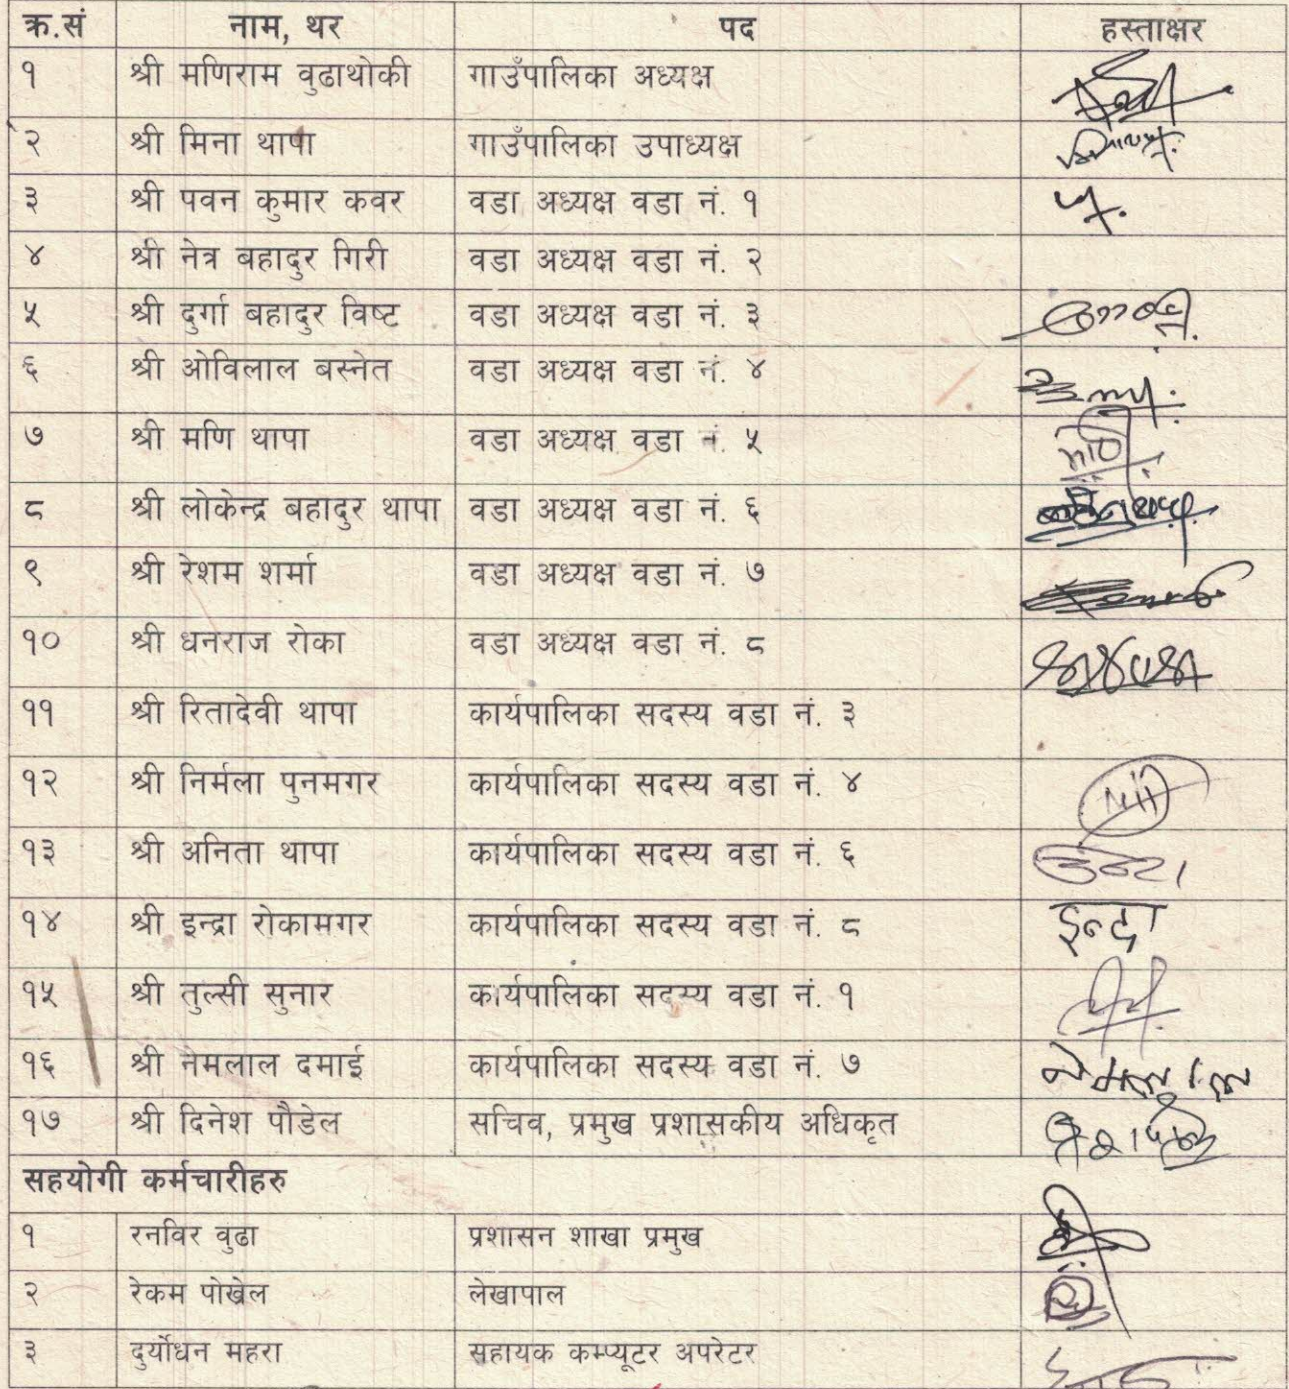 क्र.सं नाम, थर पद हस्ताक्षर
१ श्री मणिराम वुढाथोकी गाउँपालिका अध्यक्ष
२ श्री मिना थापा गाउँपालिका उपाध्यक्ष
३ श्री पवन कुमार कवर वडा अध्यक्ष वडा नं. १
४ श्री नेत्र बहादुर गिरी वडा अध्यक्ष वडा नं. २
५ श्री दुर्गा बहादुर विष्ट वडा अध्यक्ष वडा नं. ३
६ श्री ओविलाल बस्नेत वडा अध्यक्ष वडा नं. ४
७ श्री मणि थापा वडा अध्यक्ष वडा नं. ५
८ श्री लोकेन्द्र बहादुर थापा वडा अध्यक्ष वडा नं. ६
९ श्री रेशम शर्मा वडा अध्यक्ष वडा नं. ७
१० श्री धनराज रोका वडा अध्यक्ष वडा नं. ८
११ श्री रितादेवी थापा कार्यपालिका सदस्य वडा नं. ३
१२ श्री निर्मला पुनमगर कार्यपालिका सदस्य वडा नं. ४
१३ श्री अनिता थापा कार्यपालिका सदस्य वडा नं. ६
१४ श्री इन्द्रा रोकामगर कार्यपालिका सदस्य वडा नं. ८ इन्द्रा
१५ श्री तुल्सी सुनार कार्यपालिका सदस्य वडा नं. १
१६ श्री नेमलाल दमाई कार्यपालिका सदस्य वडा नं. ७
१७ श्री दिनेश पौडेल सचिव, प्रमुख प्रशासकीय अधिकृत
सहयोगी कर्मचारीहरु
१ रनविर वुढा प्रशासन शाखा प्रमुख
२ रेकम पोखेल लेखापाल
३ दुर्योधन महरा सहायक कम्प्यूटर अपरेटर